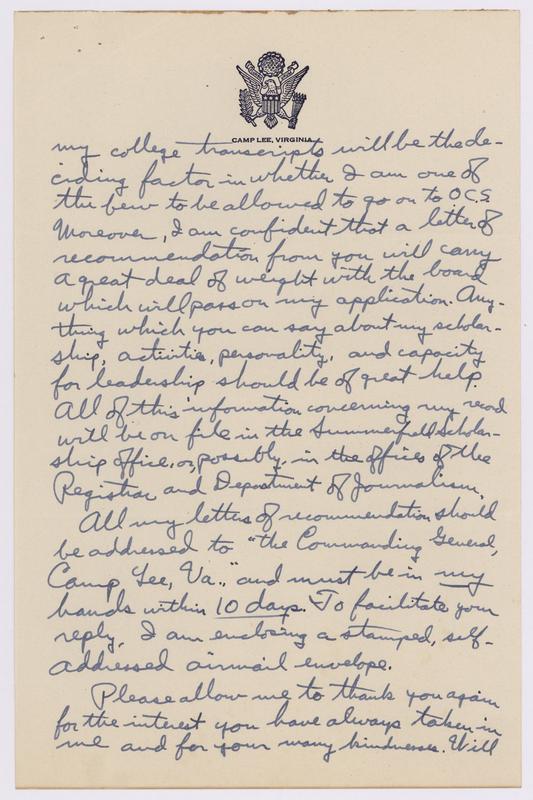 CAMP LEE, VIRGINIA
my college transcripts will be the de-
ciding factor in whether I am one of
the few to be allowed to go on to O.C.S.
Moreover, I am confident that a letter of
recommendation from you will carry
a great deal of weight with the board
which will pass on my application. Any-
thing which you can say about my scholar-
ship, activities, personality, and capacity
for leadership should be of great help.
All of this information concerning my record
will be on file in the Summerfield Scholar-
ship office, or, possibly, in the offices of the
Registrar and Department of Journalism.
All my letters of recommendation should
be addressed to "the Commanding General,
Camp Lee, Va.," and must be in my
hands within 10 days. To facilitate your
reply, I am enclosing a stamped, self-
addressed airmail envelope.
Please allow me to thank you again
for the interest you have always taken in
me and for your many kindnesses. Will